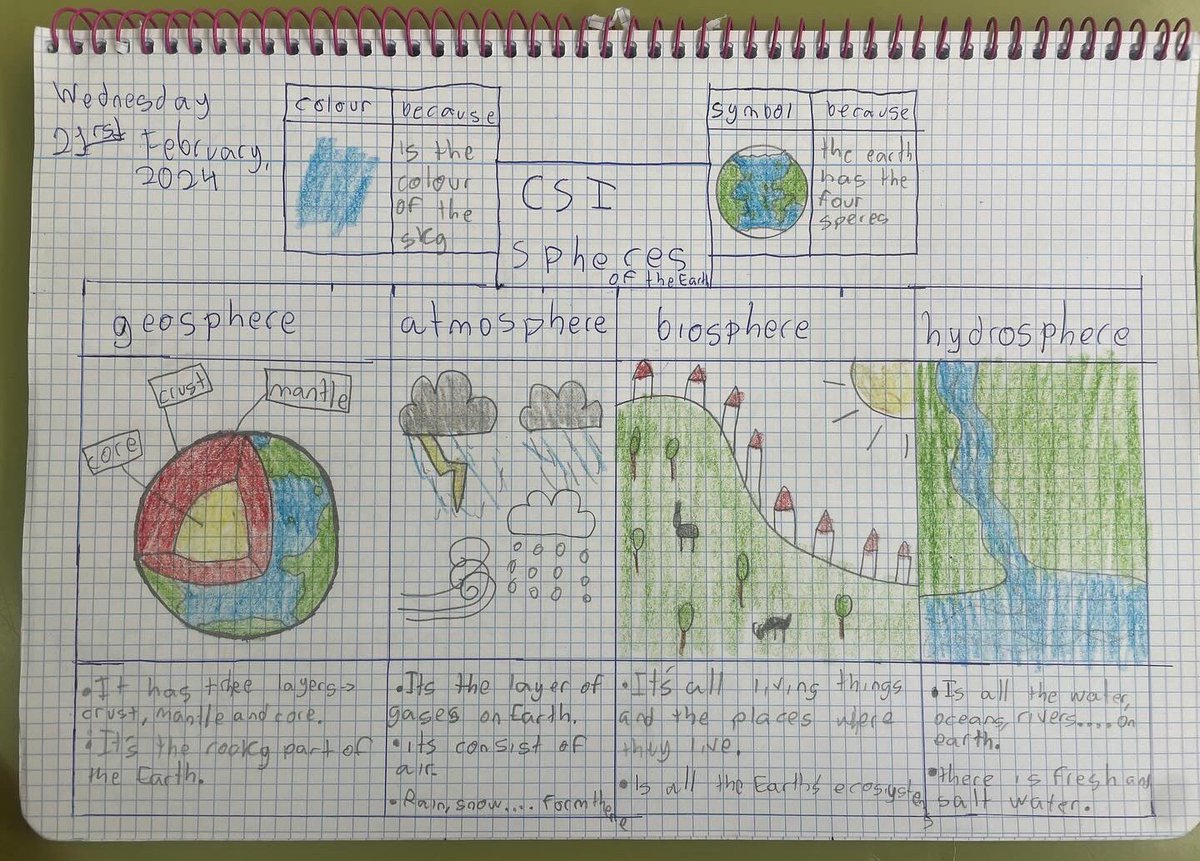 Wednesday
21rst February,
2024
colour
because
is the
colour
of the
sky
CSI
Spheres
of the Earth
symbol
because
the earth
has the
four
speres
geosphere
atmosphere
biosphere
hydrosphere
crust
mantle
core
• It has three layers→
crust, mantle and core.
• It's the rocky part of
the Earth.
• Its the layer of
gases on Earth.
• its consist of
air.
• Rain, snow.... form there
• It's all living things
and the places where
they live.
• Is all the Earth's ecosystems
• Is all the water,
oceans, rivers.... on
earth.
• there is fresh and
salt water.